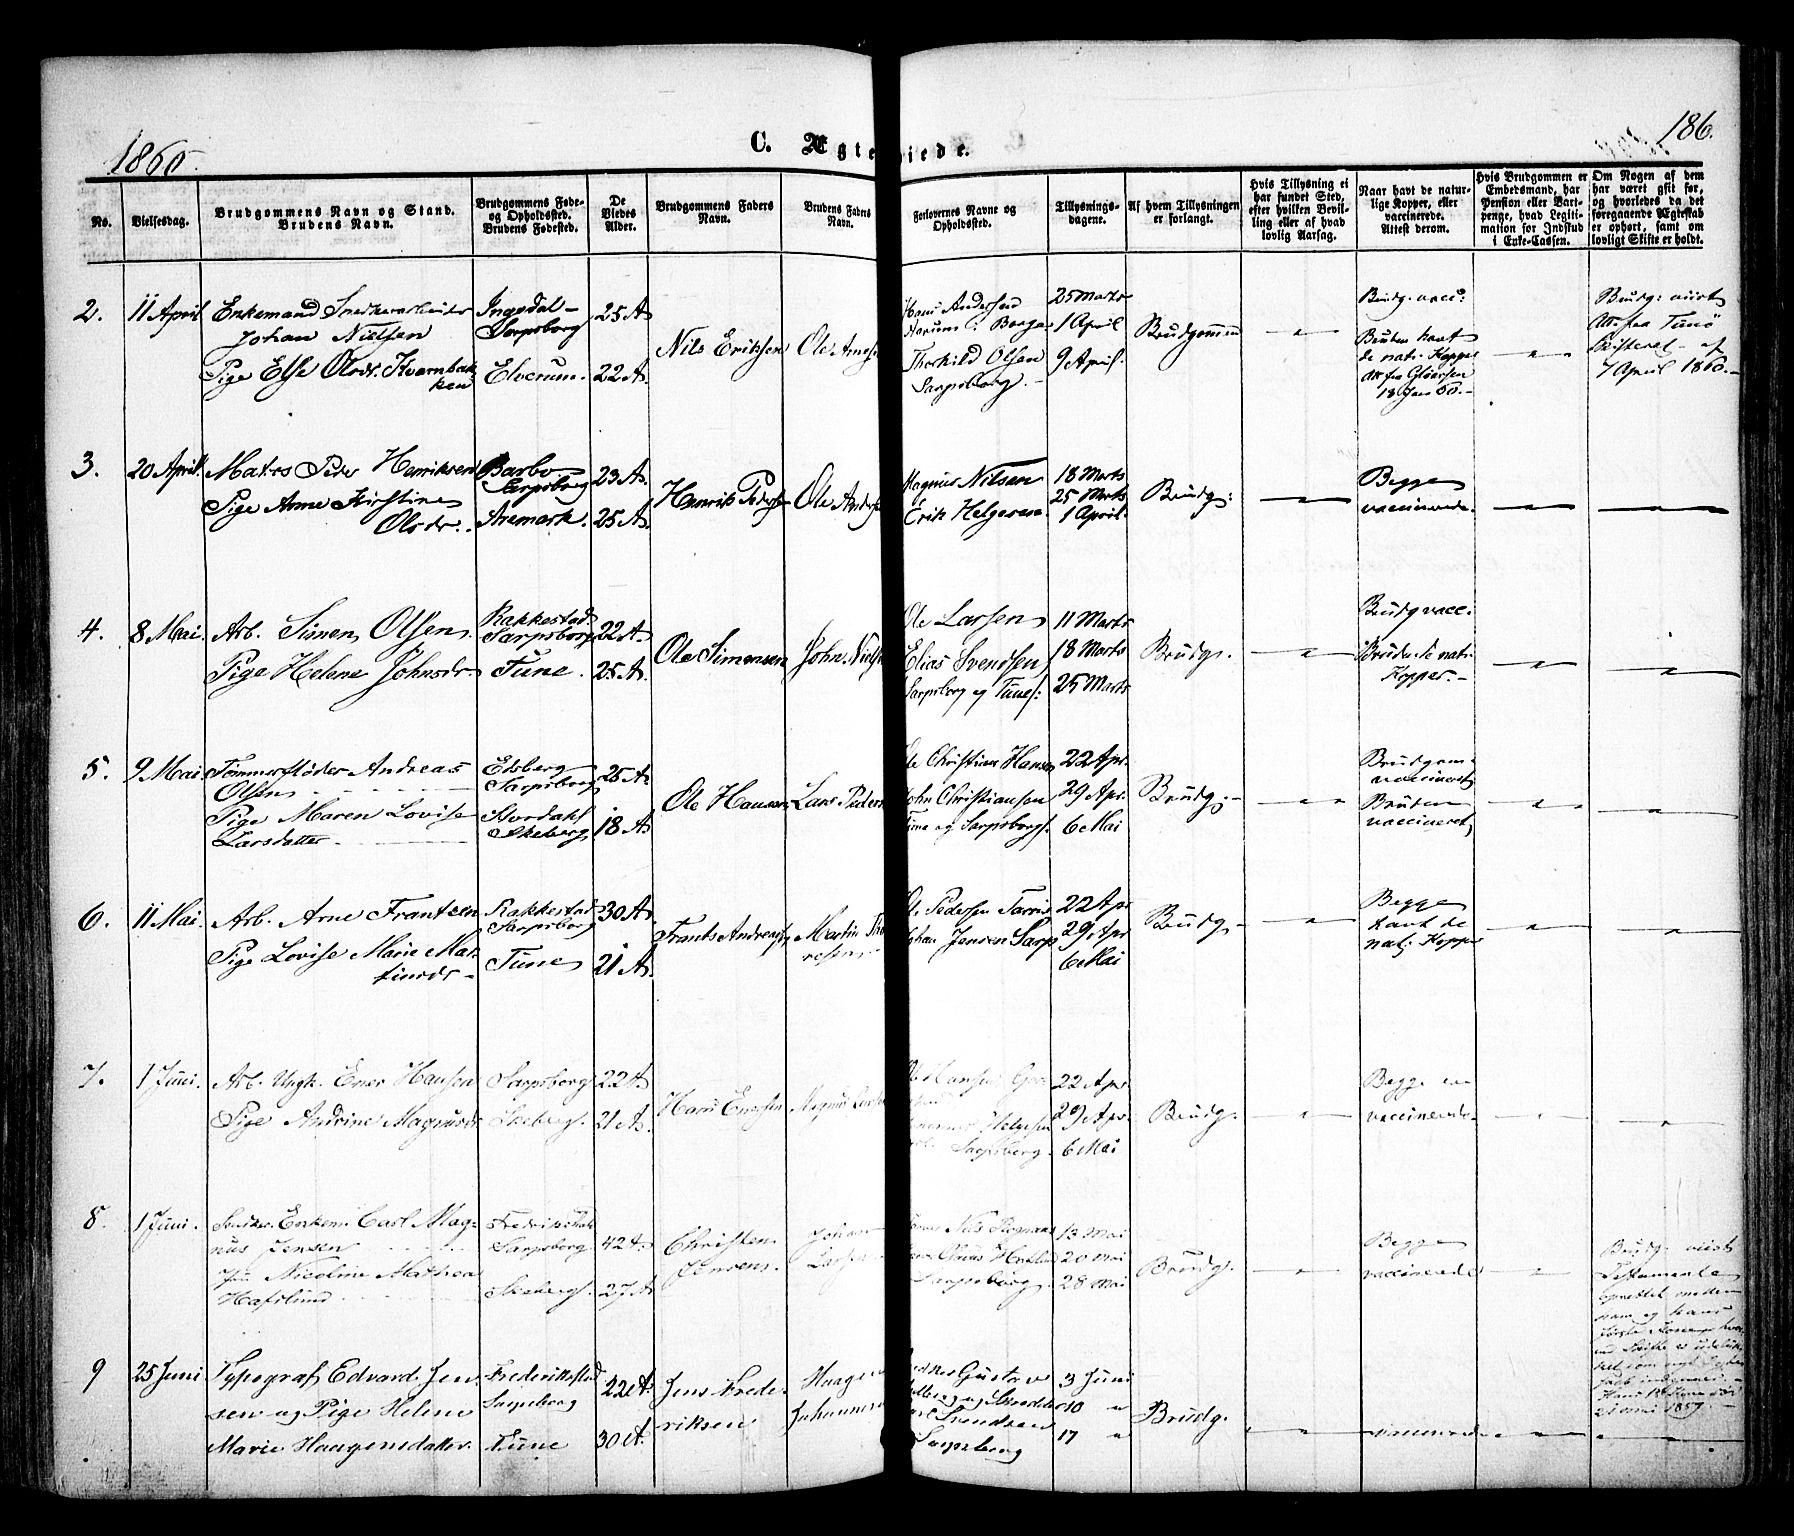 1860.
C. Ægteviede.
186.
No.
Vielsesdag.
Brudgommens Navn og Stand.
Brudens Navn.
Brudgommens Føde-
og Opholdssted.
Brudens Fødested.
De
Viedes
Alder.
Brudgommens Faders
Navn.
Brudens Faders
Navn.
Forlovernes Navne og
Opholdssted.
Tillysnings-
dagene.
Af hvem Tillysningen
er forlangt.
Hvis Tillysning ei
har fundet Sted,
efter hvilken Bevil-
ling eller af hvad
lovlig Aarsag.
Naar havt de natur-
lige Kopper, eller
vaccinerede.
Attest derom.
Hvis Brudgommen er
Embedsmand, har
Pension eller Vart-
penge, hvad Legiti-
mation for Indskud
i Enke-Cassen.
Om Nogen af dem
har været gift før,
og hvorledes da det
foregaaende Ægteskab
er ophørt, samt om
lovligt Skifte er holdt.
2. 11 April
Enkemand Snedkerarbeider
Johan Nielsen
Pige Else Olsdr. Kvernbak-
ken
Ingedal -
Sarpsborg
Elverum.
25 A
22 A.
Nils Eriksen
Ole Arnes
Hans Andersen
i Borge
Thorkild Olsen
Sarpsborg. -
25 Marts
1 April
9 April.
Brudgommen
Brudg. vacc:
Bruden havt
de nat: Kopper
Att fra Gløersen
18 Jan 60. -
Brudg: viist
Att fra Tunø
Skifteret - af
7 April 1860. -
3. 20 April.
Matros Peder Henriksen
Pige Anne Kirstine
Olsdr.
Barbo
Sarpsborg
Aremark.
23 A.
25 A
Henrik Peders
Ole Anders
Magnus Nilsen
Erik Helgesen.
18 Marts
25 Marts
1 April.
Brudg:
Begge
vaccinerede.
4. 8 Mai.
Arb. Simen Olsen.
Pige Helene Johnsdr.
Rakkestad
Sarpsborg
Tune.
22 A.
25 A.
Ole Simensen
John Niels
Ole Larsen
Elias Svendsen
Sarpsborg og Tune.
11 Marts
18 Marts
25 Marts
Brudg.
Brudg vacc.
Bruden de nat.
Kopper. -
5. 9 Mai.
Tømmerfløder Andreas
Olsen
Pige Maren Lovise
Larsdatter
Edsberg
Sarpsborg
Skeberg
25 A.
18 A.
Ole Hansen
Lars Peders
Ole Christian Hansen
John Christiansen
Tune og Sarpsborg.
22 Apr.
29 Apr.
6 Mai
Brudg: -
Brudgom-
vaccineret
Bruden
vaccineret
6. 11 Mai.
Arb. Arne Frantzen
Pige Lovise Marie Mar-
tinsdr -
Rakkestad
Sarpsborg
Tune
30 A.
21 A.
Frants Andreas
Martin Tho
resen
Ole Pedersen
Johan Jensen Sarps
22 Apr
29 Apr
6 Mai
Brudg.
Begge
havt de
nat. Kopper
7. 1 Juni.
Arb. Ungk. Ener Hansen
Pige Andrine Magnusdr
Sarpsborg
Skeberg.
22 A
21 A.
Hans Enersen
Magnus Larsen
Hansen
Helgesen
Sarpsborg.
22 Apr.
29 Apr.
6 Mai
Brudg.
Begge
vaccinerede.
8. 1 Juni.
Snedker. Enkem. Carl Mag-
nus Jensen
Nicoline Mathea
Hafslund
Fredrikstad
Sarpsborg
Skeberg.
42 A.
27 A
Christen
Jensen.
Johan
Larsen
Nils
Sarpsborg.
13 Mai
20 Mai
28 Mai
Brudg.
Begge
vaccinerede
Brudg. viist
Testamente
oprettet mellem
ham og hans
første Kone
21 Mai 1859. -
9 25 Juni
Typograf Edvard Jen-
sen og Pige Helene
Marie Haagensdatter.
Frederikstad
Sarpsborg
Tune
22 A.
30 A.
Jens Frede-
riksen
Haagen
Johannesen
Gustav
Svendsen
Sarpsborg
3 Juni
10 "
17 "
Brudg.
vaccinerede